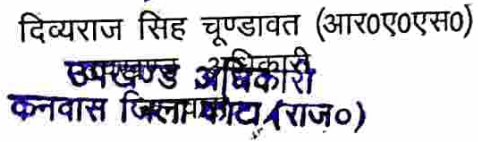 दिव्यराज सिंह चूण्डावत (आर०ए०एस०)
उपखण्ड अधिकारी
कनवास जिला कोटा (राज०)